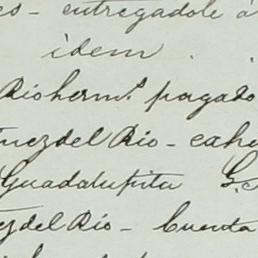 es- entregadole á
idem
Rio herm.s pagado
inez del Rio - cahe
Guadalupita G.
ez del Rio - Cuenta